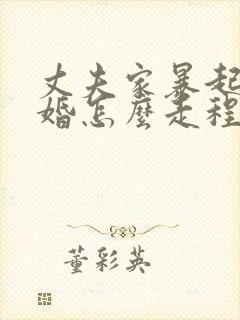 丈夫家暴起
婚怎麼走程
董彩英